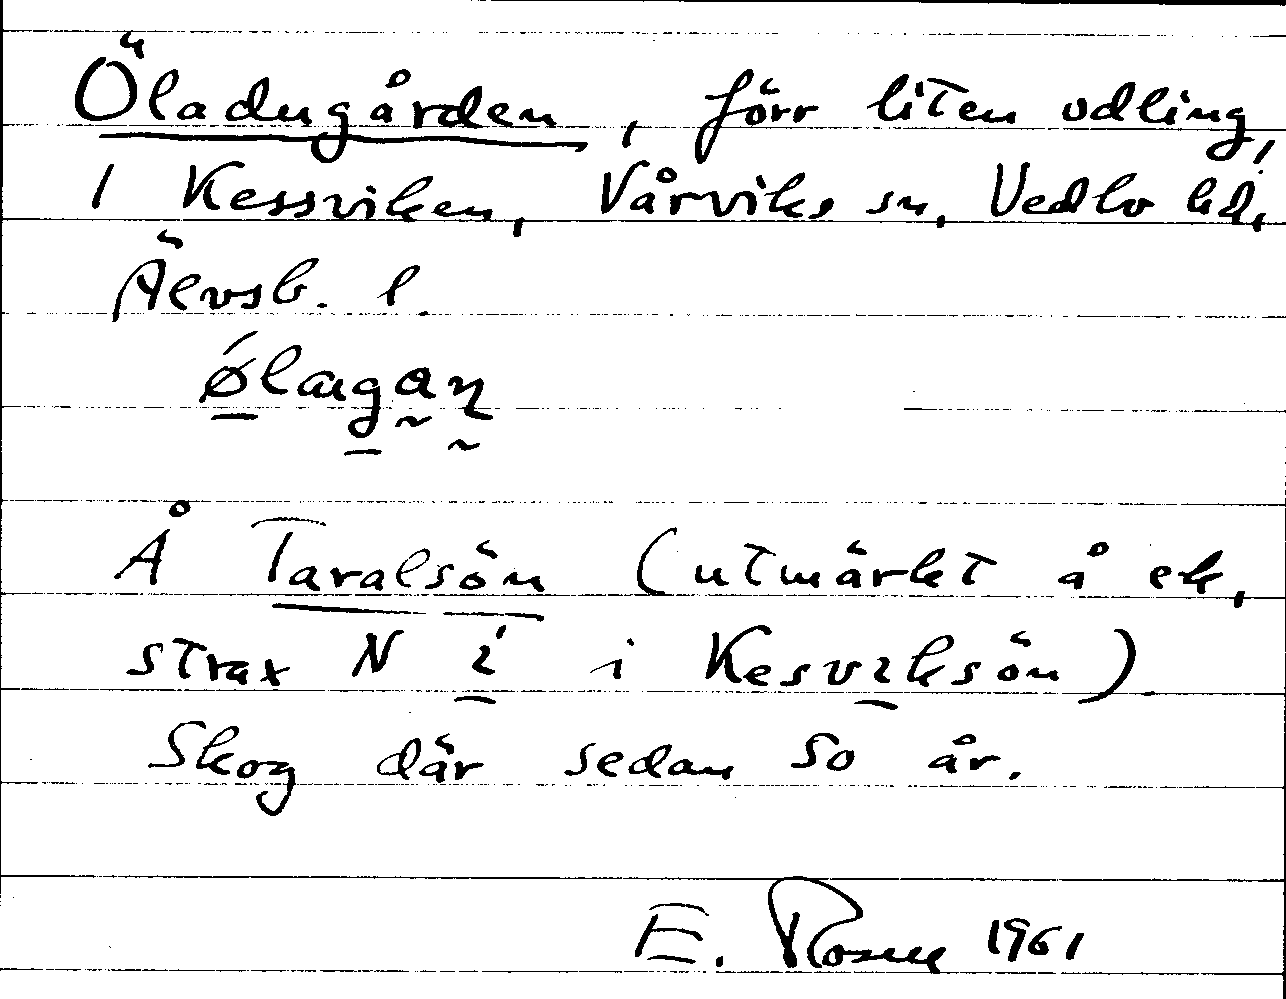 Öladugården, förr liten odling,
1 Kessviken, Vårviks sn, Vedbo hd,
Älvsb. l.
Å Taralsön (utmärkt å ek,
strax N i i Kesviksön).
Skog där sedan 50 år.
E. Rosell 1961